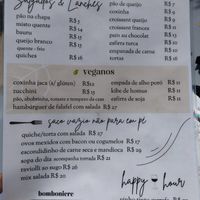 Salgados & Lanches
pão na chapa R$ 5
misto quente R$ 14
bauru R$
queijo branco R$ 13
quente - frio R$ 11
quiches R$ 16
pão de queijo R$ 7
coxinha R$ 9
croissant queijo R$
croissant frances R$
pain au chocolat R$ 13
esfirra turca R$ 11
empanada de carne R$
tortas R$ 18
veganos
coxinha jaca (s/ glúten) R$12
zucchini R$ 13
pão, abobrinha, tomate e tempero da casa
hambúrguer de falafel com salada R$ 27
empada de alho poró R$ 11
kibe de homus R$ 11
esfirra de soja R$ 11
saco vazio não para em pé
quiche/torta com salada R$ 27
ovos mexidos com bacon ou cogumelos R$ 17
escondidinho de carne seca e mandioca R$ 29
sopa do dia acompanha torrada R$ 21
ravioli ao sugo R$ 26
mix salada R$ 20
happy hour
bomboniere